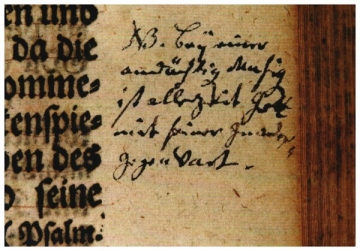 en und
da die
omme⸗
tenspie⸗
ben des
seine
Psalm.
NB. Beÿ einer
andächtig Musiq
ist allezeit Gott
mit seiner Gnaden
Gegenwart.